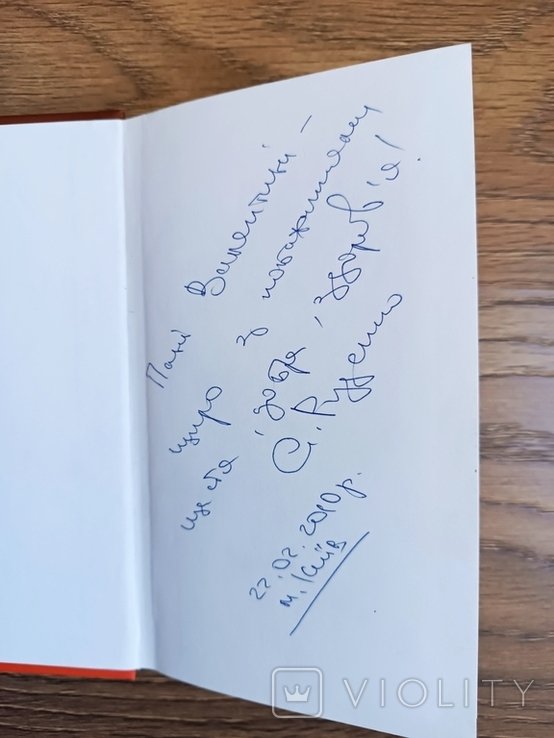 Пані Валентині –
щиро з побажаннями
щастя, добра, здоров'я!
С. Руденко
22.02.2010 р.
м. Київ
VIOLITY